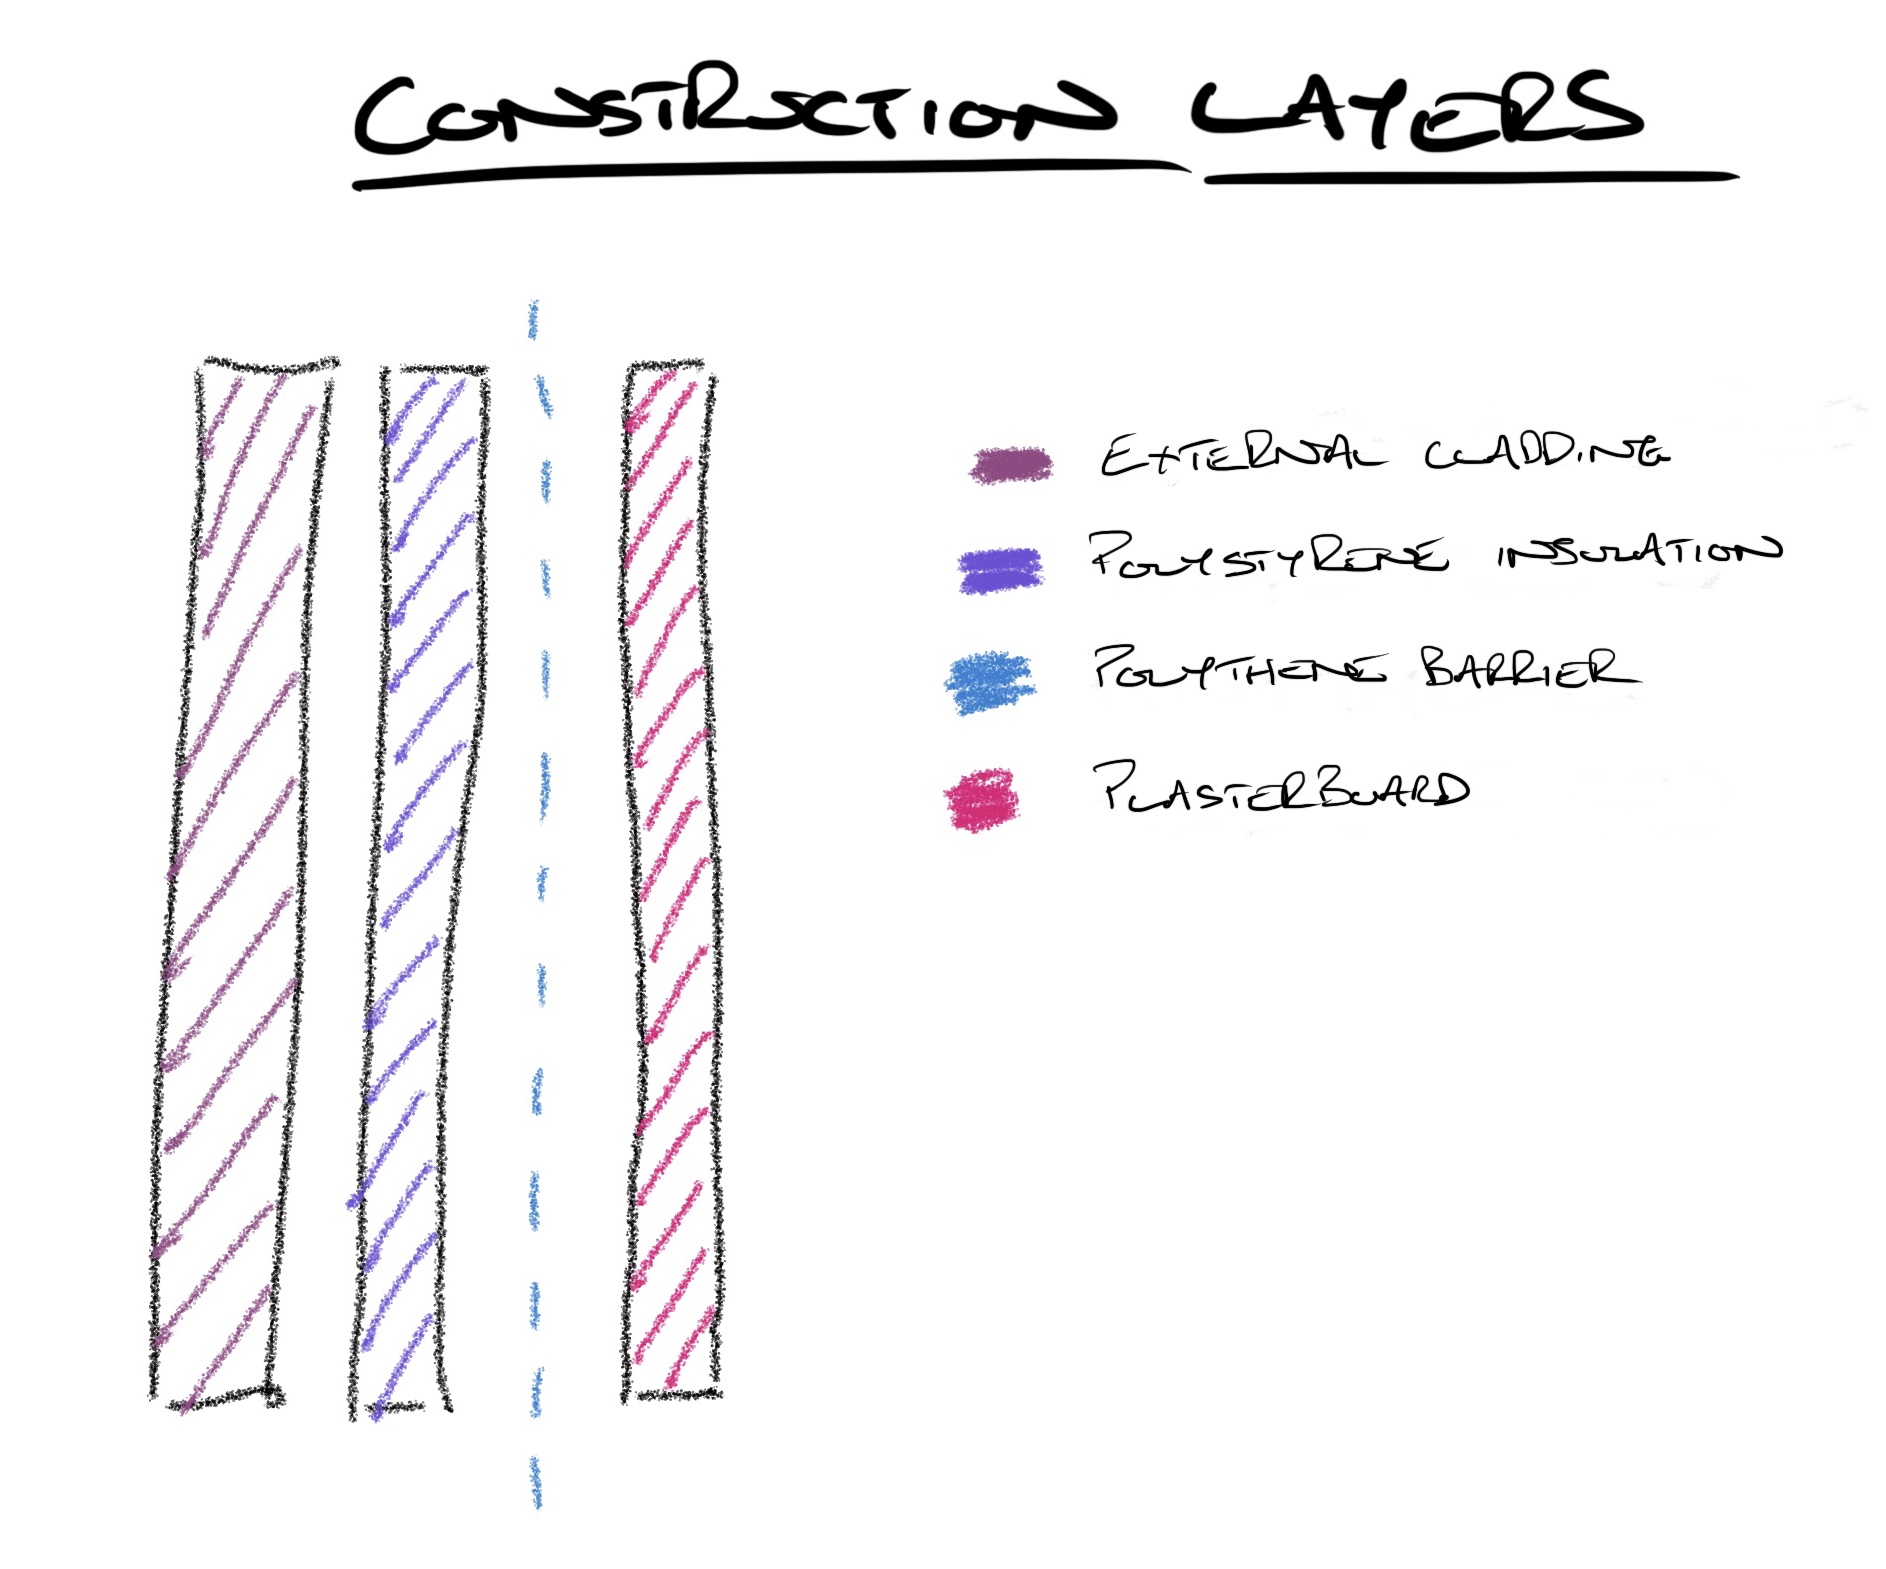 CONSTRUCTION LAYERS
EXTERNAL CLADDING
POLYSTYRENE INSULATION
POLYTHENE BARRIER
PLASTERBOARD